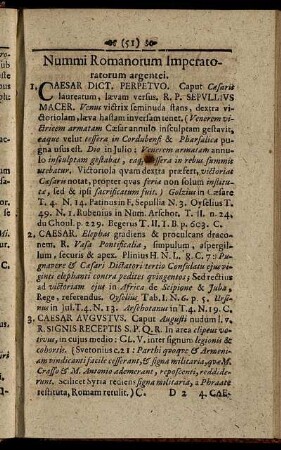 (51)
Nummi Romanorum Imperato-
ratorum argentei.
1. CAESAR DICT. PERPETVO. Caput Cæsaris
laureatum, lævam versus, R. P. SEPVLLIVS
MACER. Venus victrix seminuda stans, dextra vi-
ctoriolam, læva hastam inversam tenet, (Venerem vi-
ctricem armatam Cæsar annulo insculptam gestavit,
eaque velut tessera in Cordubensi & Pharsalica pu-
gna usus est. Dio in Julio: Venerem armatam annu-
lo insculptam gestabat, eaq; tessera in rebus summis
utebatur. Victoriola quam dextra præfert, victorias
Cæsaris notat, propter quas feria non solum institu-
tæ, sed & ipsi sacrificatum fuit.) Golzius in Cæsare
T. 4. N. 14. Patinus in F. Sepullia N. 3. Oyselius T.
49. N. 1. Rubenius in Num. Arschot. T. II. n. 24.
du Choul p. 229. Begerus T. II. I. B. p. 603. C.
2. CAESAR. Elephas gradiens & proculcans draco-
nem, R. Vasa Pontificalia, simpulum, aspergil-
lum, securis & apex. Plinius H. N L. 8. C. 7: Pu-
gnavere & Cæsari Dictatori tertio Consulatu ejus vi-
ginti elephanti contra pedites quingentos; Sed rectius
ad victoriam ejus in Africa de Scipione & Juba,
Rege, referendus. Oyselius Tab. I. N. 6. p. 5. Ursi-
nus in Jul. T. 4. N. 13. Arschotanus in T. 4. N. 19. C.
3. CAESAR AVGVSTVS. Caput Augusti nudum l. v.
R. SIGNIS RECEPTIS S. P. Q. R. In area clipeus vo-
tivus, in cujus medio: CL. V. inter signum legionis &
cohortis. (Svetonius c. 21: Parthi quoque & Armeni-
am vindicanti facile cesserant, & signa militaria, quæ M.
Crasso & M. Antonio ademerant, reposcenti, reddide-
runt. Scilicet Syria rediens signa militaria, a Phraate
restituta, Romam retulit.) C. D 2 4. CAE-